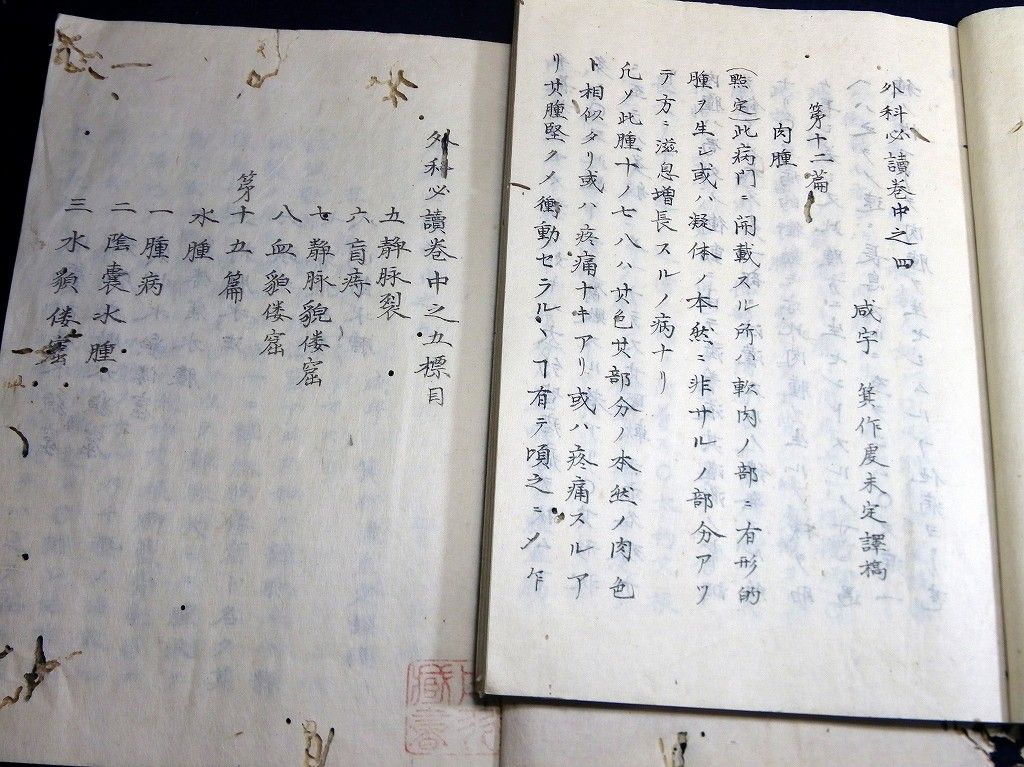 外科必讀巻中之四
咸宇 箕作虔未定譯稿
第十二篇
肉腫
(㸃定)此病門ニ開載スル所ハ軟肉ノ部ニ有形的
腫ヲ生シ或ハ凝体ノ本然ニ非サルノ部分アツ
テ方ニ滋息増長スルノ病ナリ
凡ソ此腫十ノ七八ハ其色其部分ノ本然ノ肉色
ト相似タリ或ハ疼痛ナキアリ或ハ疼痛スルア
リ其腫堅クメ衝動セラルヽヿ有テ頃之ニメ乍
外科必讀巻中之五標目
五 静脉裂
六 盲痔
七 静脉貌偻窟
八 血貌偻窟
第十五篇
水腫
一 腫病
二 陰嚢水腫
三 水貌偻窟
藏書